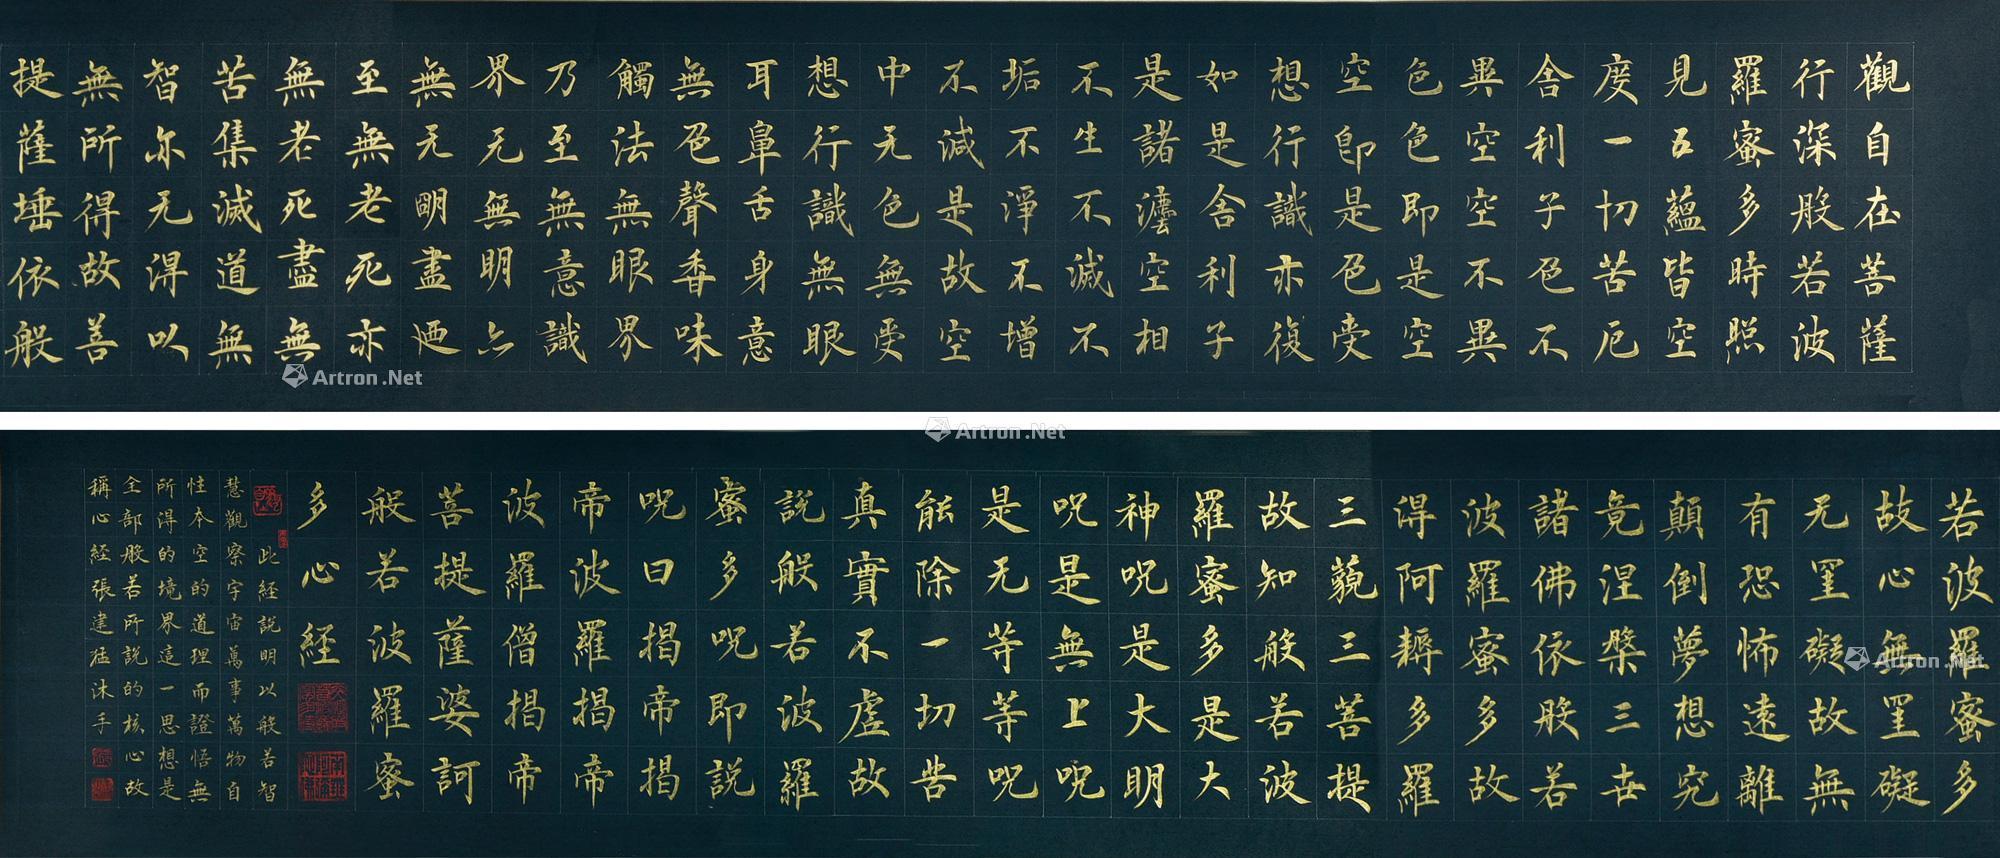 觀自在菩薩
行深般若波
羅蜜多時照
見五蘊皆空
度一切苦厄
舍利子色不
異空空不異
色色即是空
空即是色受
想行識亦復
如是舍利子
是諸灋空相
不生不滅不
垢不淨不增
不減是故空
中无色無受
想行識無眼
耳鼻舌身意
無色聲香味
觸法無眼界
乃至無意識
界无無明亦
無无明盡廼
至無老死亦
無老死盡無
苦集滅道無
智亦无得以
無所得故菩
提薩埵依般
若波羅蜜多
故心無罣礙
无罣礙故無
有恐怖遠離
顛倒夢想究
竟涅槃三世
諸佛依般若
波羅蜜多故
得阿耨多羅
三藐三菩提
故知般若波
羅蜜多是大
神呪是大明
呪是無上呪
是无等等呪
能除一切苦
真實不虛故
說般若波羅
蜜多呪即說
呪曰揭帝揭
帝波羅揭帝
波羅僧揭帝
菩提薩婆訶
般若波羅蜜
多心經
此經說明以般若智
慧觀察宇宙萬事萬物自
性本空的道理而證悟無
所得的境界這一思想是
全部般若所說的核心故
稱心經張建猛沐手
Artron.Net
Artron.Net
Artron.Net